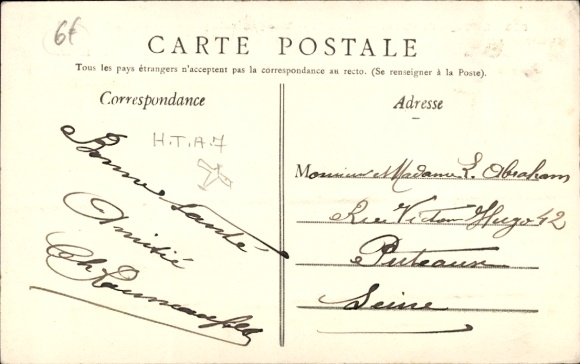 6€
CARTE POSTALE
Tous les pays étrangers n'acceptent pas la correspondance au recto. (Se renseigner à la Poste).
Correspondance
H.T.A.7
Bonne Santé
Amitié
Ch
Adresse
Monsieur Madame L. Abraham
Rue Victor Hugo 42
Puteaux
Seine